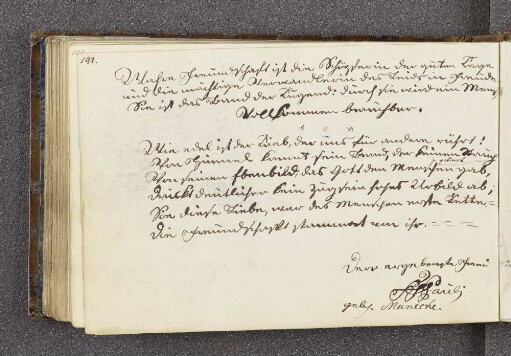 191.
Wahre Freundschaft ist die Schöpferin der guten Tage
und die mächtige Verwandlerin des Leids in Freude
Sie ist das Band der Tugend: durch sie wird ein Men
Vollkommen brauchbar.
Wie edel ist der Trieb, der uns für andere rührt!
Vom Himmel kommt sein Brand, der keinen Rauch
Von seinem Ebenbild, das Gott den Menschen gab,
Drückt deutlicher kein Zug sein hohes Urbild ab;
Sie diese Liebe, war der Menschen erste Kette
Die Freundschaft stammet von ihr.
Dero ergebenste Freun
Pauli
geb. Münecke.